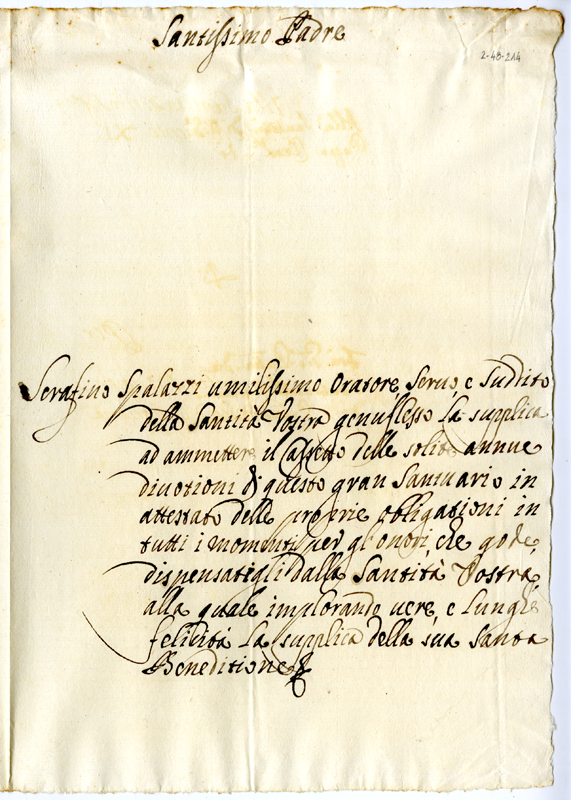 Santissimo Padre
2-48-214
Serafino Spalazzi umilissimo Oratore, Servo, e Suddito
della Santità Vostra genuflesso La supplica
ad ammettere il cassetto delle solite annue
divotioni di questo gran Santuario in
attestato delle proprie obligationi in
tutti i momenti per gl'onori, che gode,
dispensatigli dalla Santità Vostra,
alla quale implorando vere, e lunghe
felicità La supplica della sua Santa
Beneditione